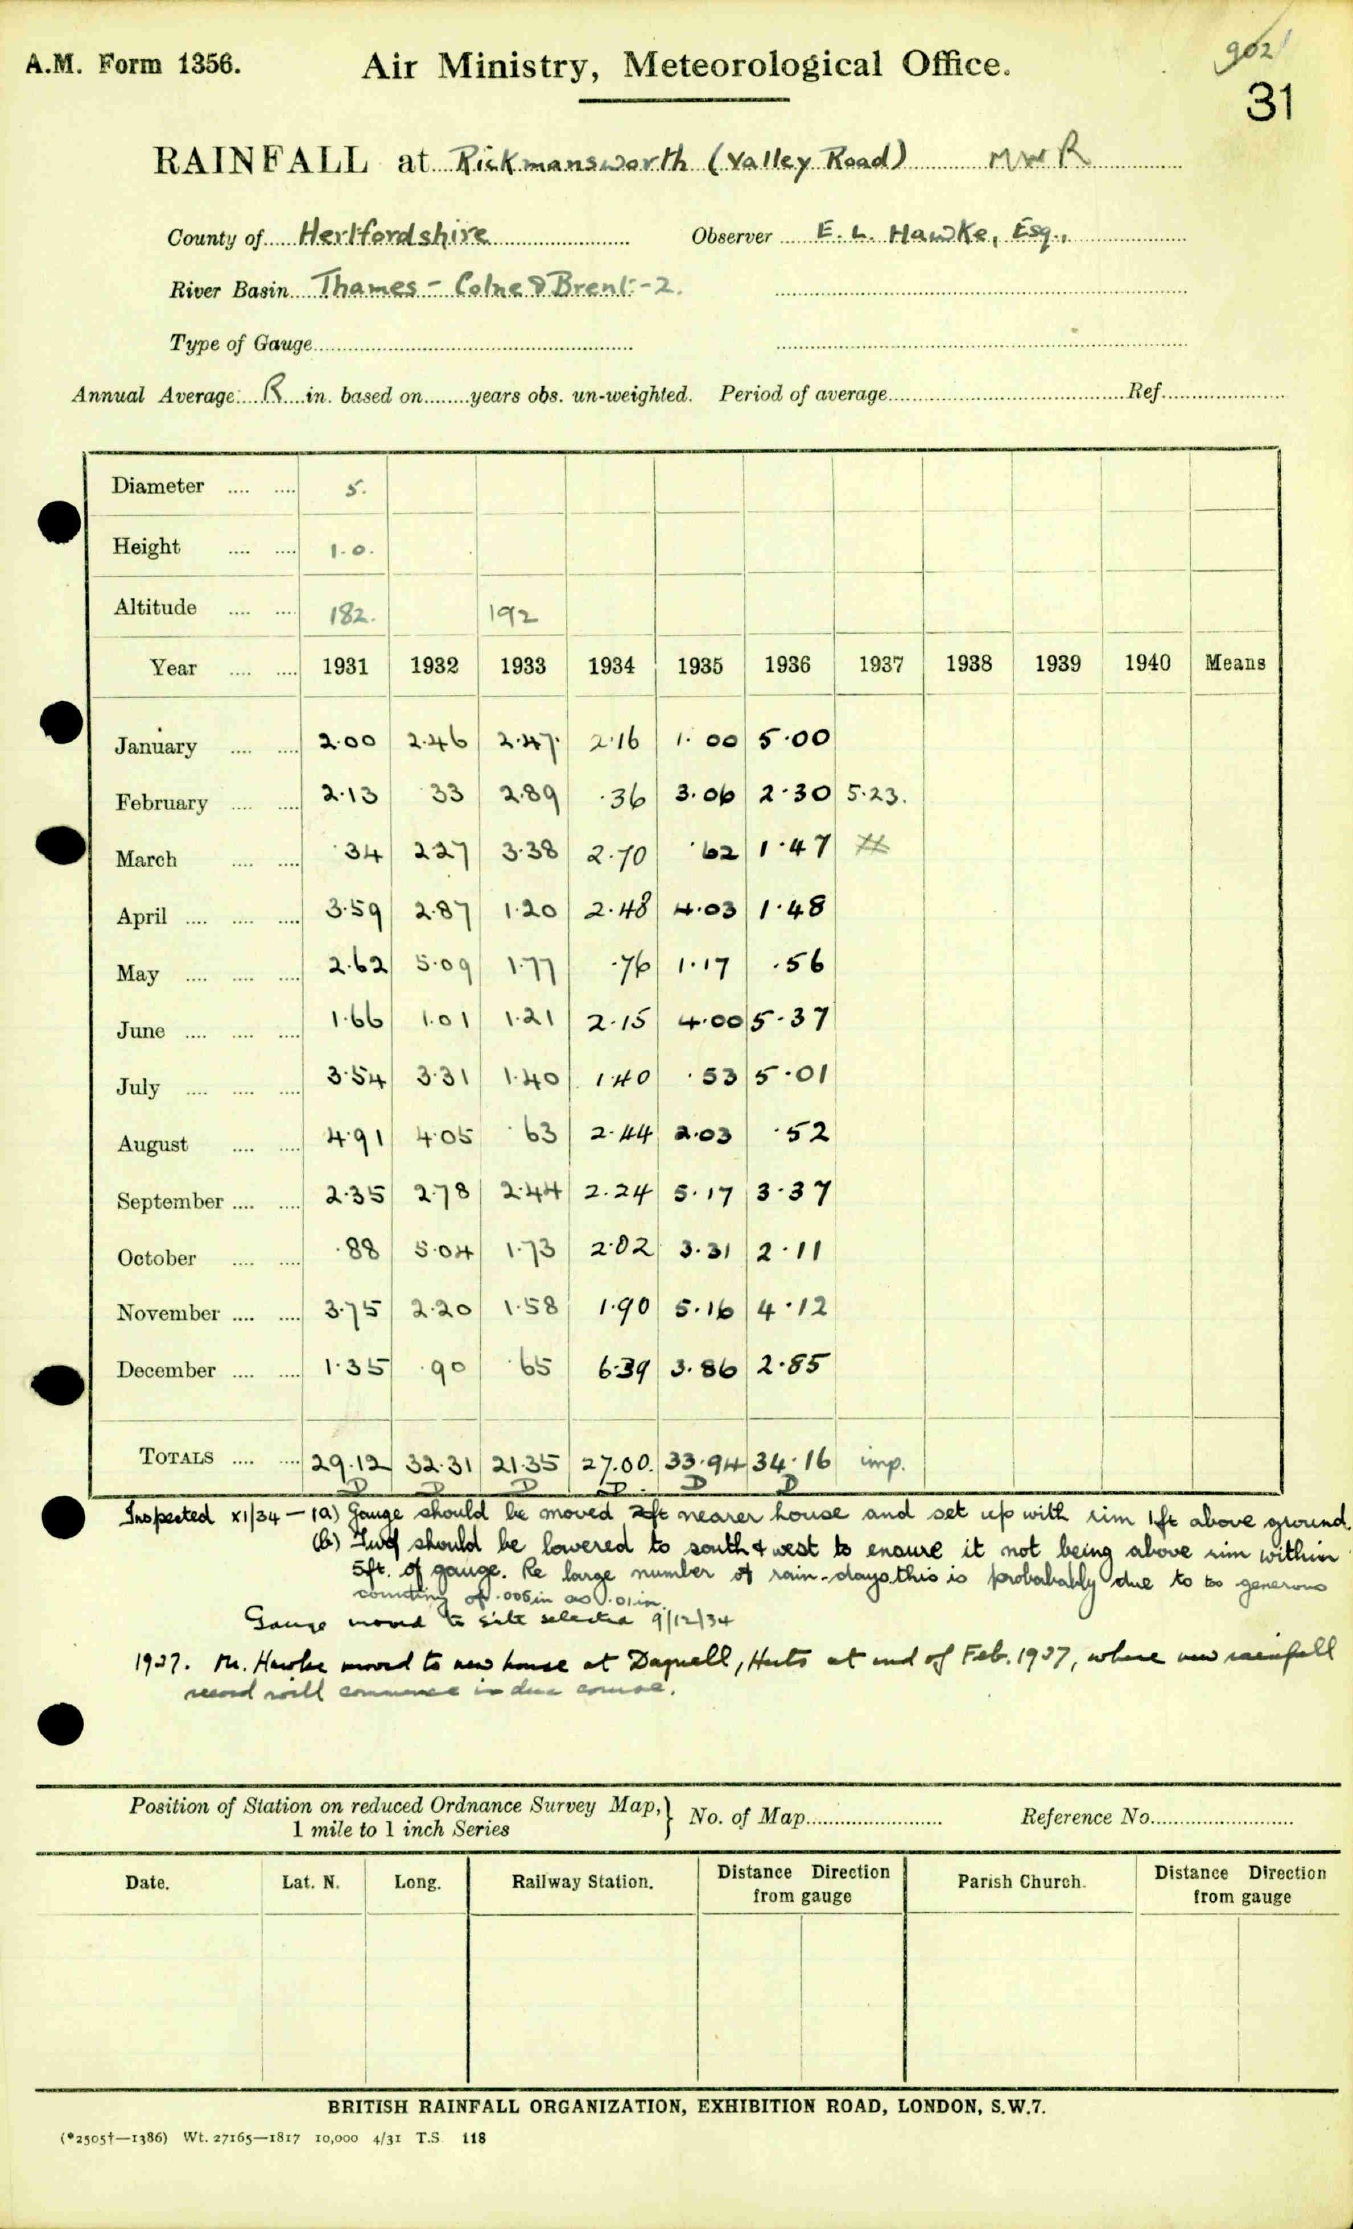 902
A.M. Form 1356. Air Ministry, Meteorological Office.
31
RAINFALL at Rickmansworth (Valley Road) MWR
County of Hertfordshire Observer E. L. Hawke, Esq.,
River Basin Thames - Colne & Brent -2.
Type of Gauge
Annual Average R in. based on years obs. un-weighted. Period of average Ref.
Diameter 5.
Height 1.0.
Altitude 182. 192
Year 1931 1932 1933 1934 1935 1936 1937 1938 1939 1940 Means
January 2.00 2.46 2.47 2.16 1.00 5.00
February 2.13 .33 2.89 .36 3.06 2.30 5.23.
March .34 2.27 3.38 2.70 .62 1.47
April 3.59 2.87 1.20 2.48 4.03 1.48
May 2.62 5.09 1.77 .76 1.17 .56
June 1.66 1.01 1.21 2.15 4.00 5.37
July 3.54 3.31 1.40 1.40 .53 5.01
August 4.91 4.05 .63 2.44 2.03 .52
September 2.35 2.78 2.44 2.24 5.17 3.37
October .88 5.04 1.73 2.02 3.31 2.11
November 3.75 2.20 1.58 1.90 5.16 4.12
December 1.35 .90 .65 6.39 3.86 2.85
TOTALS 29.12 32.31 21.35 27.00. 33.94 34.16 imp.
D D D D D D
Inspected XI/34 - (a) Gauge should be moved 2ft nearer house and set up with rim 1ft above ground.
(b) Turf should be lowered to south & west to ensure it not being above rim within
5ft. of gauge. Re large number of rain-days this is probabably due to too generous
counting of .005in as .01in.
Gauge moved to site selected 9/12/34
1937. Mr. Hawke moved to new house at Dagnell, Herts at end of Feb. 1937, where new rainfall
record will commence in due course.
Position of Station on reduced Ordnance Survey Map, } No. of Map Reference No.
1 mile to 1 inch Series
Date. Lat. N. Long. Railway Station. Distance Direction from gauge Parish Church. Distance Direction from gauge
BRITISH RAINFALL ORGANIZATION, EXHIBITION ROAD, LONDON, S.W.7.
(*2505†—1386) Wt. 27165—1817 10,000 4/31 T.S. 118